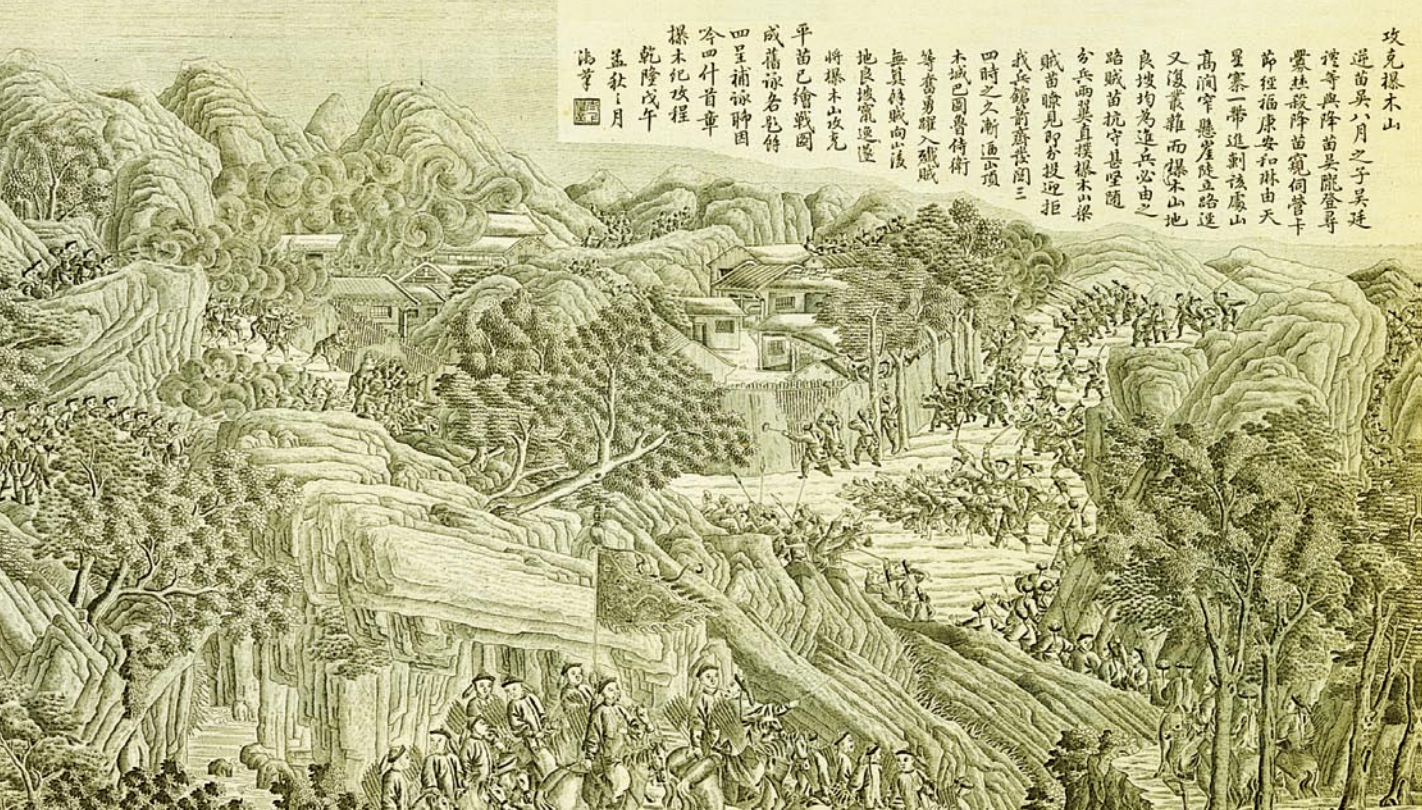 攻克摞木山
逆苗吳八月之子吳廷
禮等與降苗吳隴登尋
釁絲殺降苗窺伺營卡
節經福康安和琳由天
星寨一帶進剿該處山
高澗窄懸崖陡立路逕
又復叢雜而摞木山地
良坡均為進兵必由之
路賊苗抗守甚堅隨
分兵兩翼直撲摞木山梁
賊苗瞭見即分投迎拒
我兵鎗箭齊發閱三
四時之久漸逼山頂
木城巴圖魯侍衛
等奮勇躍入殲賊
無算餘賊向山後
地良坡竄逸遂
將摞木山攻克
平苗已繪戰圖
成舊詠各題餘
四呈補詠聊因
吟四什首章
摞木紀攻程
乾隆戊午
孟秋之月
御筆